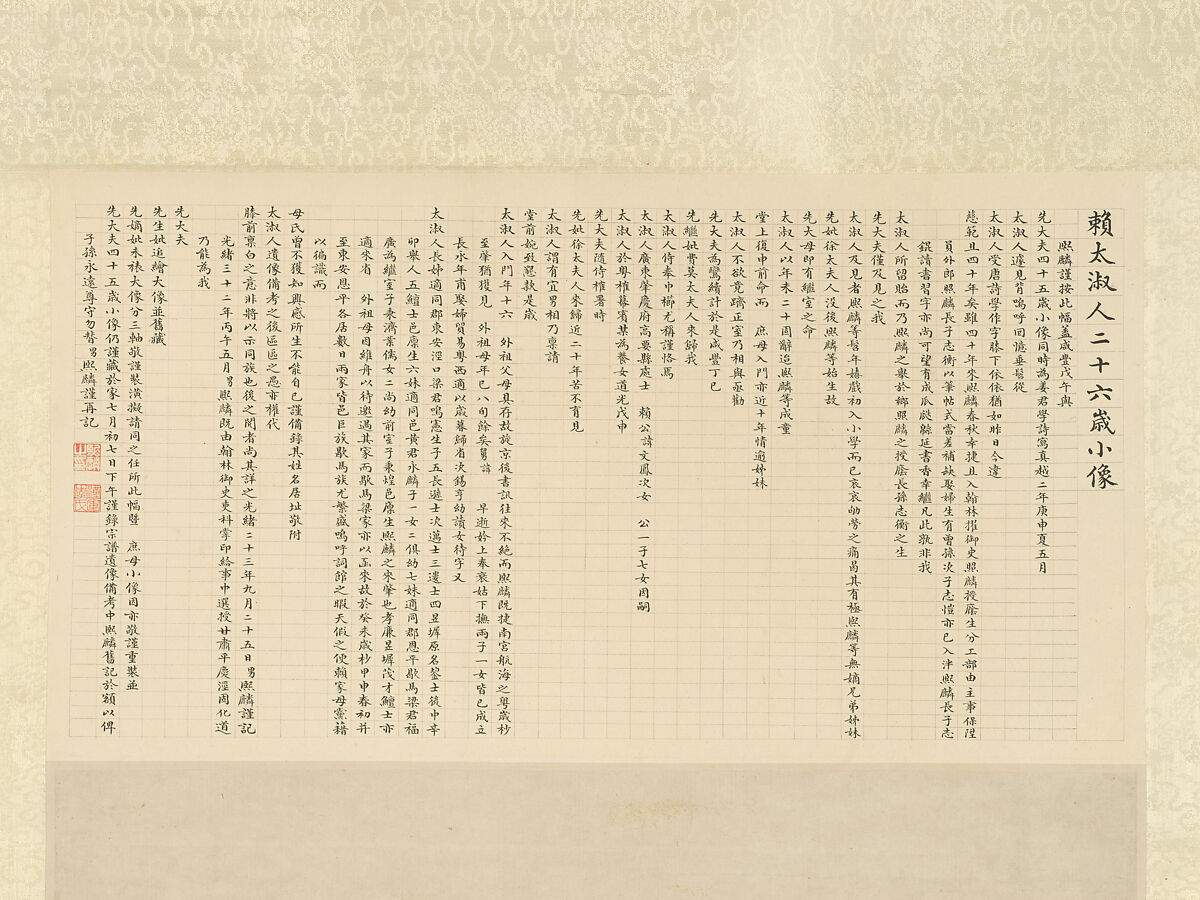 賴太淑人二十六歲小像
熙麟謹按此幅蓋咸豐戊午與
先大夫四十五歲小像同時為姜君學詩寫真越二年庚申夏五月
太淑人遽見背嗚呼回憶垂髫從
太淑人受唐詩學作字膝下依依猶如昨日今違
慈範且四十年矣雖四十年來熙麟春秋幸捷且入翰林擢御史照麟授廕生分工部由主事保陞
員外郎熙麟長子志衡以筆帖式當差補缺娶婦生有曾孫次子志愷亦已入泮照麟長子志
錕讀書習字亦尚可望有成瓜瓞緜延書香幸繼凡此孰非我
太淑人所留貽而乃熙麟之舉於鄉照麟之授廕長孫志衡之生
先大夫僅及見之我
太淑人及見者熙麟等髫年嬉戲初入小學而已哀哀劬勞之痛曷其有極熙麟等無嫡兄弟姊妹
先妣徐太夫人沒後熙麟等始生故
先大母即有繼室之命
太淑人以年未二十固辭迨熙麟等成童
堂上復申前命而 庶母入門亦近十年情逾姊妹
太淑人不欲竟躋正室乃相與亟勸
先大夫為鸞續計於是咸豐丁巳
先繼妣費莫太夫人來歸我
太淑人侍奉巾櫛尤稱謹恪焉
太淑人廣東肇慶府高要縣處士 賴公諱文鳳次女 公一子七女因嗣
太淑人於粵榷幕賓某為養女道光戊申
先大夫隨侍榷署時
先妣徐太夫人來歸近二十年苦不育見
太淑人謂有宜男相乃稟請
堂前婉致懇款是歲
太淑人入門年十六 外祖父母具存故旋京後書訊往來不絕而熙麟既捷南宮航海之粵歲杪
至肇猶獲見 外祖母年已八旬餘矣舅諱 早逝妗上奉衰姑下撫兩子一女皆已成立
長永年甫娶婦貿易粵西適以歲暮歸省次錫亨幼讀女待字又
太淑人長姊適同郡東安涇口梁君鳴憲生子五長遜士次邁士三邃士四昱墀原名鎣士後中辛
卯舉人五鱣士邑廩生六妹適同邑黃君永麟子一女二俱幼七妹適同郡恩平歇馬梁君福
廣為繼室子秉濟業儒女二尚幼前室子秉煌邑廩生熙麟之來肇也孝廉昱墀茂才鱣士亦
適來省 外祖母因維舟以待邀過其家而歇馬梁家亦以函來故於癸未歲杪甲申春初并
至東安恩平各居數日兩家皆邑巨族歇馬族尤繁盛嗚呼詞館之暇天假之便賴家母黨藉
以徧識而
母氏曾不獲如興感所生不能自已謹備錄其姓名居址敬附
太淑人遺像備考之後區區之愚亦權代
膝前稟白之意非將以示同族也後之閱者尚其詳之光緒二十三年九月二十五日男熙麟謹記
光緒三十二年丙午五月男熙麟既由翰林御史吏科掌印給事中選授甘肅平慶涇固化道
乃能為我
先大夫
先生妣追繪大像並舊藏
先嫡妣永袚大像分三軸敬謹裝潢擬請同之任所此幅暨 庶母小像因亦敬謹重裝並
先大夫四十五歲小像仍謹藏於家七月初七日下午謹錄宗譜遺像備考中熙麟舊記於額以俾
子孫永遠尊守勿替男熙麟謹再記